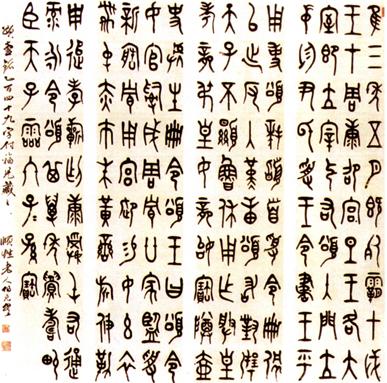 隹三年五月既死霸甲戌
王才周康卲宮旦王各大
室即立宰引右頌入門立
中廷尹氏受王令書王乎
用事頌拜稽首受令冊佩
以出反入堇章頌敢對揚
天子不顯魯休用乍朕皇
考龔叔皇母龔始寶尊
史虢生冊令頌王曰頌令
女官𤔲成周貯廿家監𤔲
新貯用宮御易女玄衣
黹屯赤巿朱黃䜌旂攸勒
用追孝祈匄康屯右通
彔永令頌其萬年眉壽畯
臣天子霝冬子子孫孫寶用
百四十九字付福兒藏之
老人